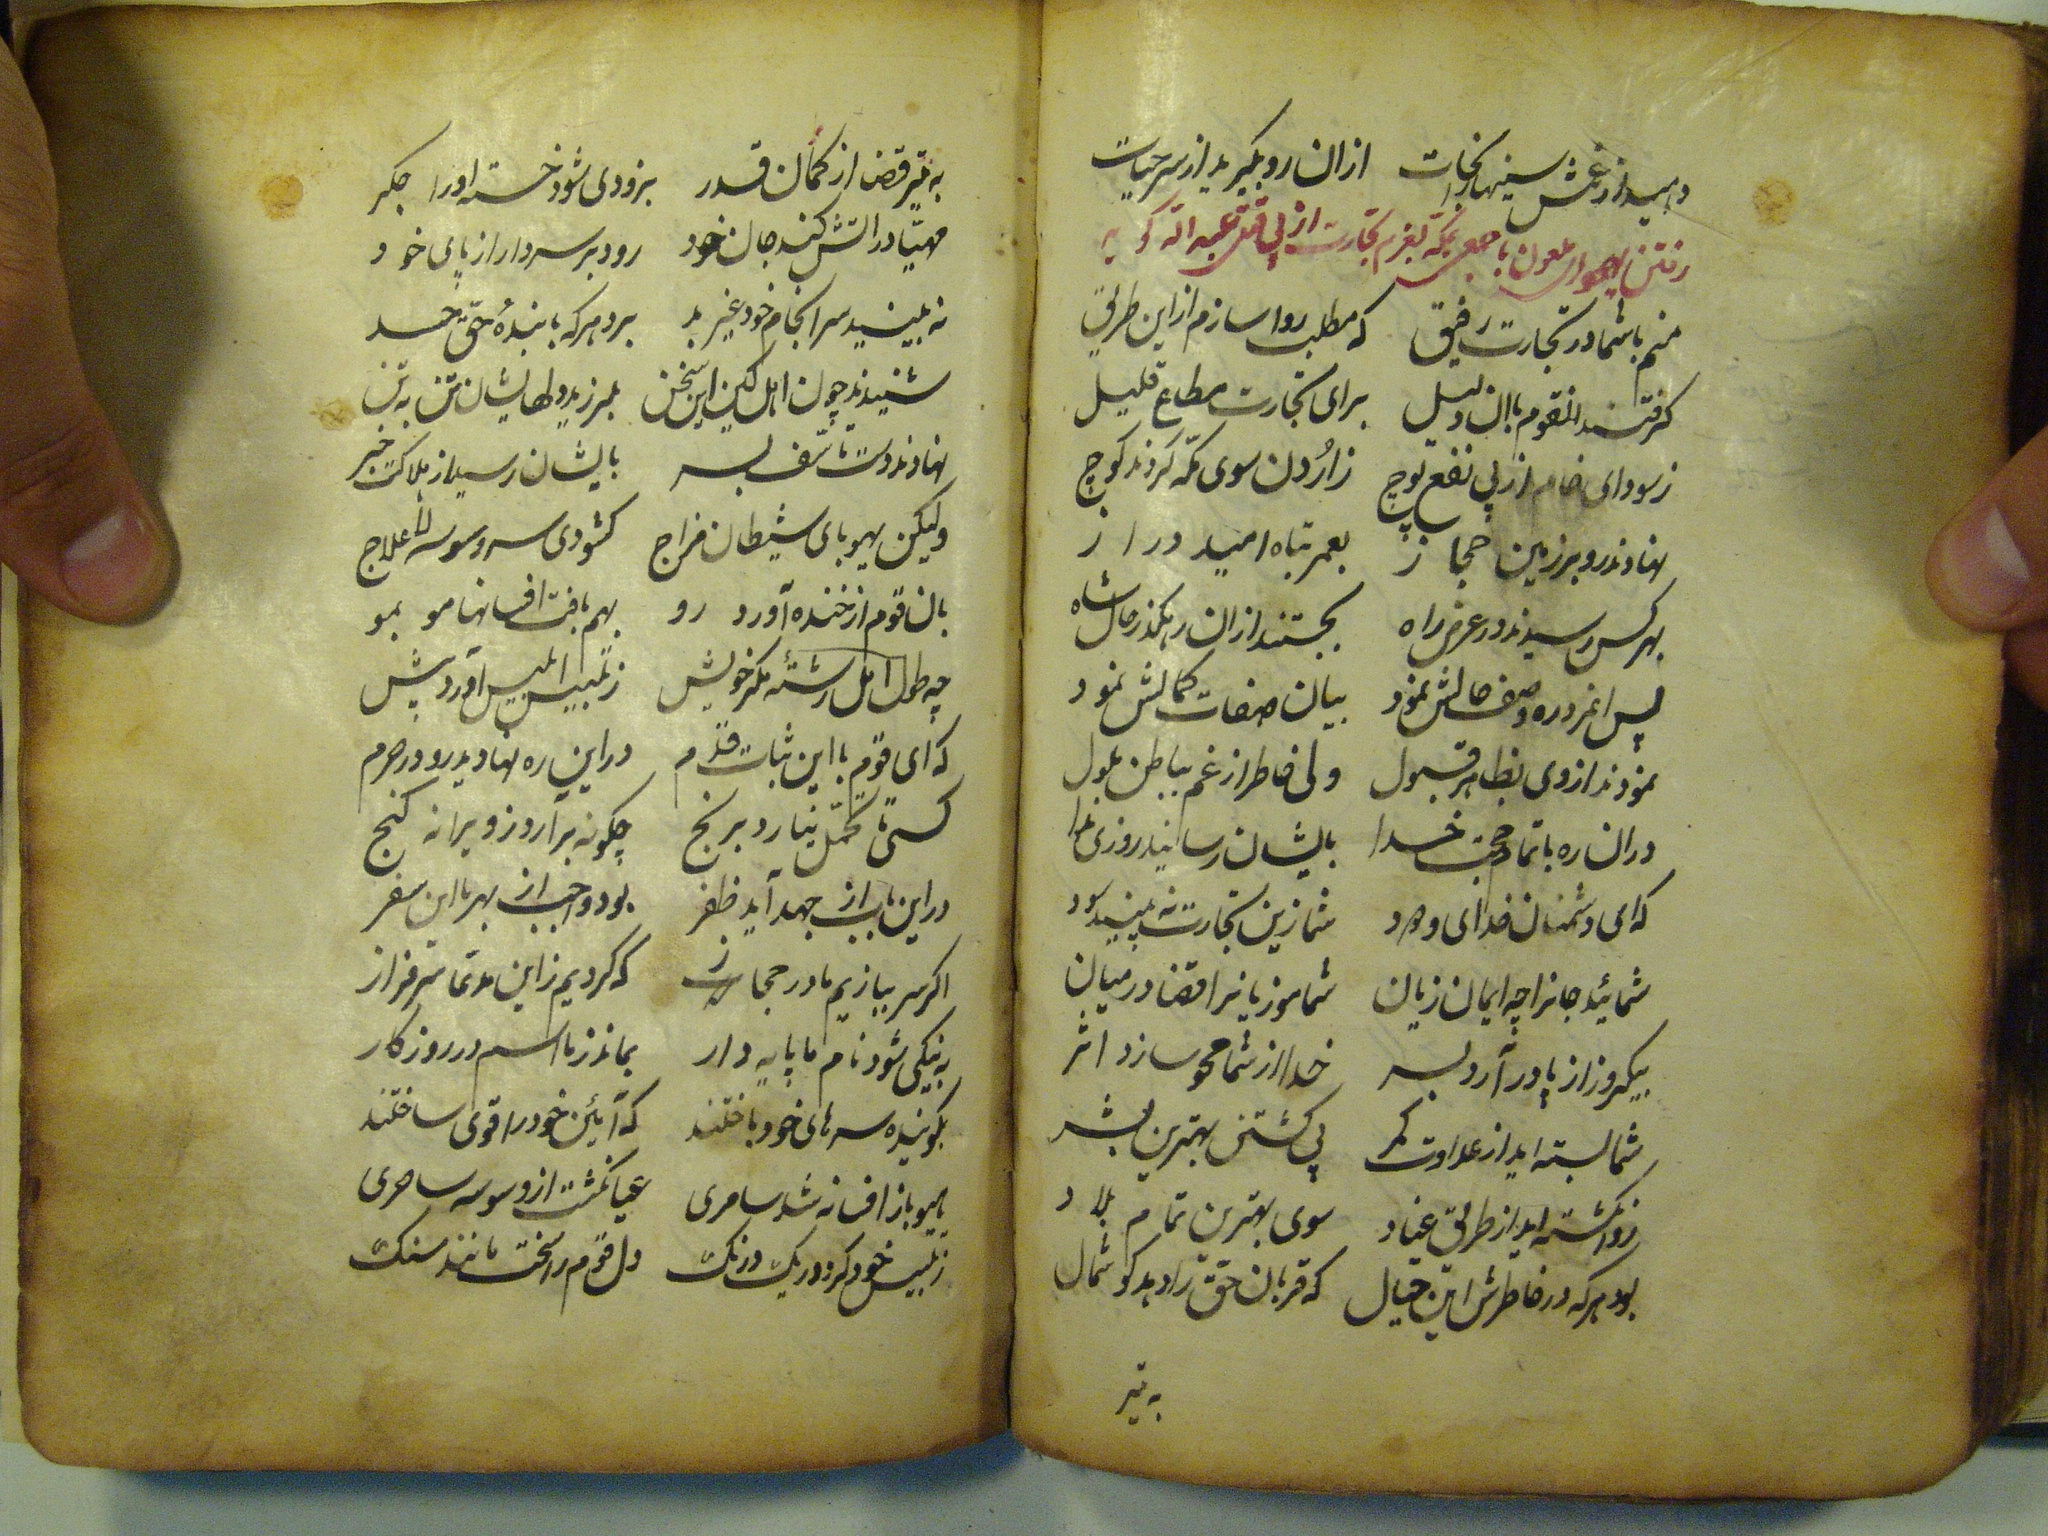 دهید از غمش سینها را نجات ازان رو بگیرید از سر حیات
رفتن یهودای ملعون با جمعی بمکه بعزم تجارت از پی قتل عبدالله گوید
منم با شما در تجارت رفیق که مطلب روا سازم از این طریق
گرفتند انقوم باان دلیل برای تجارت مطاع قلیل
ز سودای خام از پی نفع پوچ ز اردن سوی مکّه کردند کوچ
نهادند رو بر زمین حجاز بعمر تباه امید دراز
بهر کس رسیدند در عرض راه بجستند ازان رهگذر حال شاه
پس وصف حالش نمود بیان صفات کمالش نمود
نمودند از وی بظاهر قبول ولی خاطر از غم بباطن ملول
دران ره باتمام حجت خدا بایشان رسانید روزی
که ای دشمنان خدای ودود شما زین تجارت نه بینید سود
شمائید جانرا چه ایمان زیان شما موزیانرا قضا در میان
بیکروز از پا در آرد بسر خدا از شما محو سازد اثر
شما بسته اید از عداوت کمر پی کشتن بهترین بشر
روا گشته اید از طریق عناد سوی بهترین تمام بلاد
بود هرکه در خاطرش این خیال که قربان حق را دهد گوشمال
به تیر
به تیر قضا از کمان قدر بزودی شود خسته اورا جکر
مهیّا در اتش کند جان خود رود بر سر دار از پای خود
نه بیند سرانجام خود غیر بد برد هرکه با بندهٔ حقّ حسد
شنیدند چون اهل کین این سخن بلرزید دلهایشان تن به تن
نهادند دست تاسّف بسر بایشان رسید از هلاکت خبر
ولیکن یهودای شیطان مزاج کشودی سر وسوسه لا علاج
بان قوم از خنده آورد رو بهم بافت افسانها مو بمو
چه طول امل رشتهٔ مکر خویش ز تلبیس ابلیس آورد پیش
که ای قوم با این ثبات قدم در این ره نهادید رو در حرم
کسی تا تحمّل نیارد برنج چگونه برآرد ز ویرانه کنج
در این باب از جهد آید ظفر بود واجب از بهر ما این سفر
اگر سر ببازیم ما در حجاز که کردیم ز این مدّعا سرفراز
به نیکی شود نام ما پایه دار بماند ز ما اسم در روزکار
بگویند سرهای خود باختند که آیین خود را قوی ساختند
یهود باز افسانه شد سامری عیان گشت از وسوسه ساحری
ز تلبیس خود کرد در یک درنک دل قوم را سخت مانند سنک